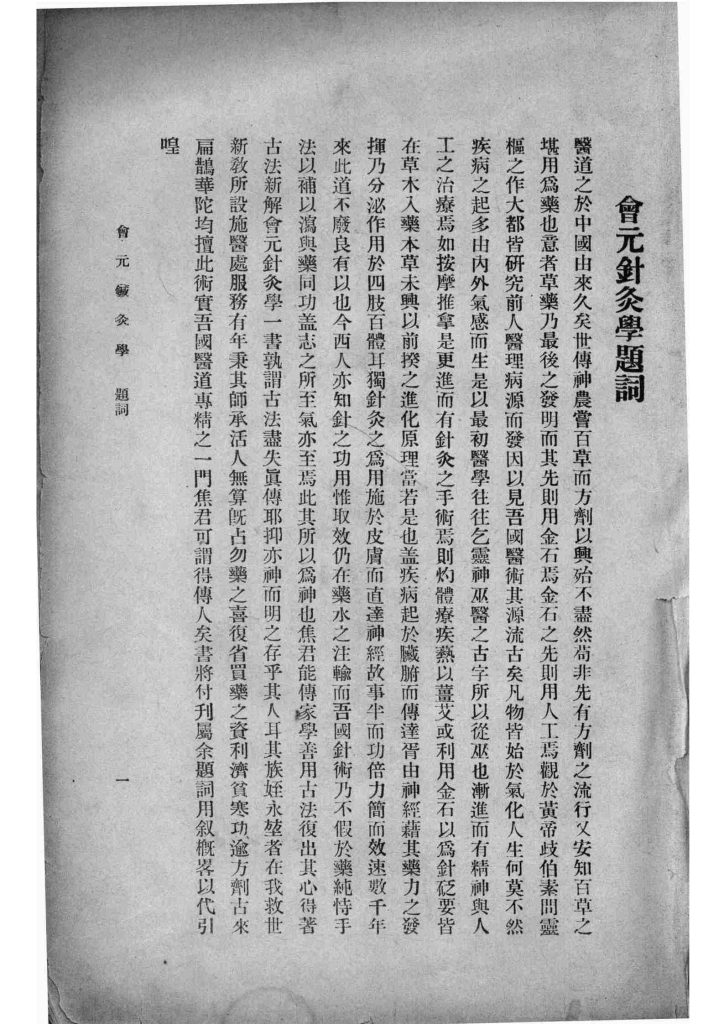 會元針灸學題詞
醫道之於中國由來久矣世傳神農嘗百草而方劑以興殆不盡然苟非先有方劑之流行又安知百草之
堪用爲藥也意者草藥乃最後之發明而其先則用金石焉金石之先則用人工焉觀於黃帝歧伯素問靈
樞之作大都皆研究前人醫理病源而發因以見吾國醫術其源流古矣凡物皆始於氣化人生何莫不然
疾病之起多由內外氣感而生是以最初醫學往往乞靈神巫醫之古字所以從巫也漸進而有精神與人
工之治療焉如按摩推拿是更進而有針灸之手術焉則灼體療疾爇以薑艾或利用金石以爲針砭要皆
在草木入藥本草未興以前揆之進化原理當若是也盖疾病起於臟腑而傳達胥由神經藉其藥力之發
揮乃分泌作用於四肢百體耳獨針灸之爲用施於皮膚而直達神經故事半而功倍力簡而效速數千年
來此道不廢良有以也今西人亦知針之功用惟取效仍在藥水之注輸而吾國針術乃不假於藥純恃手
法以補以瀉與藥同功盖志之所至氣亦至焉此其所以爲神也焦君能傳家學善用古法復出其心得著
古法新解會元針灸學一書孰謂古法盡失眞傳耶抑亦神而明之存乎其人耳其族姪永堃者在我救世
新敎所設施醫處服務有年秉其師承活人無算旣占勿藥之喜復省買藥之資利濟貧寒功逾方劑古來
扁鵲華陀均擅此術實吾國醫道專精之一門焦君可謂得傳人矣書將付刊屬余題詞用叙槪畧以代引
喤
會元鍼灸學 題詞
一